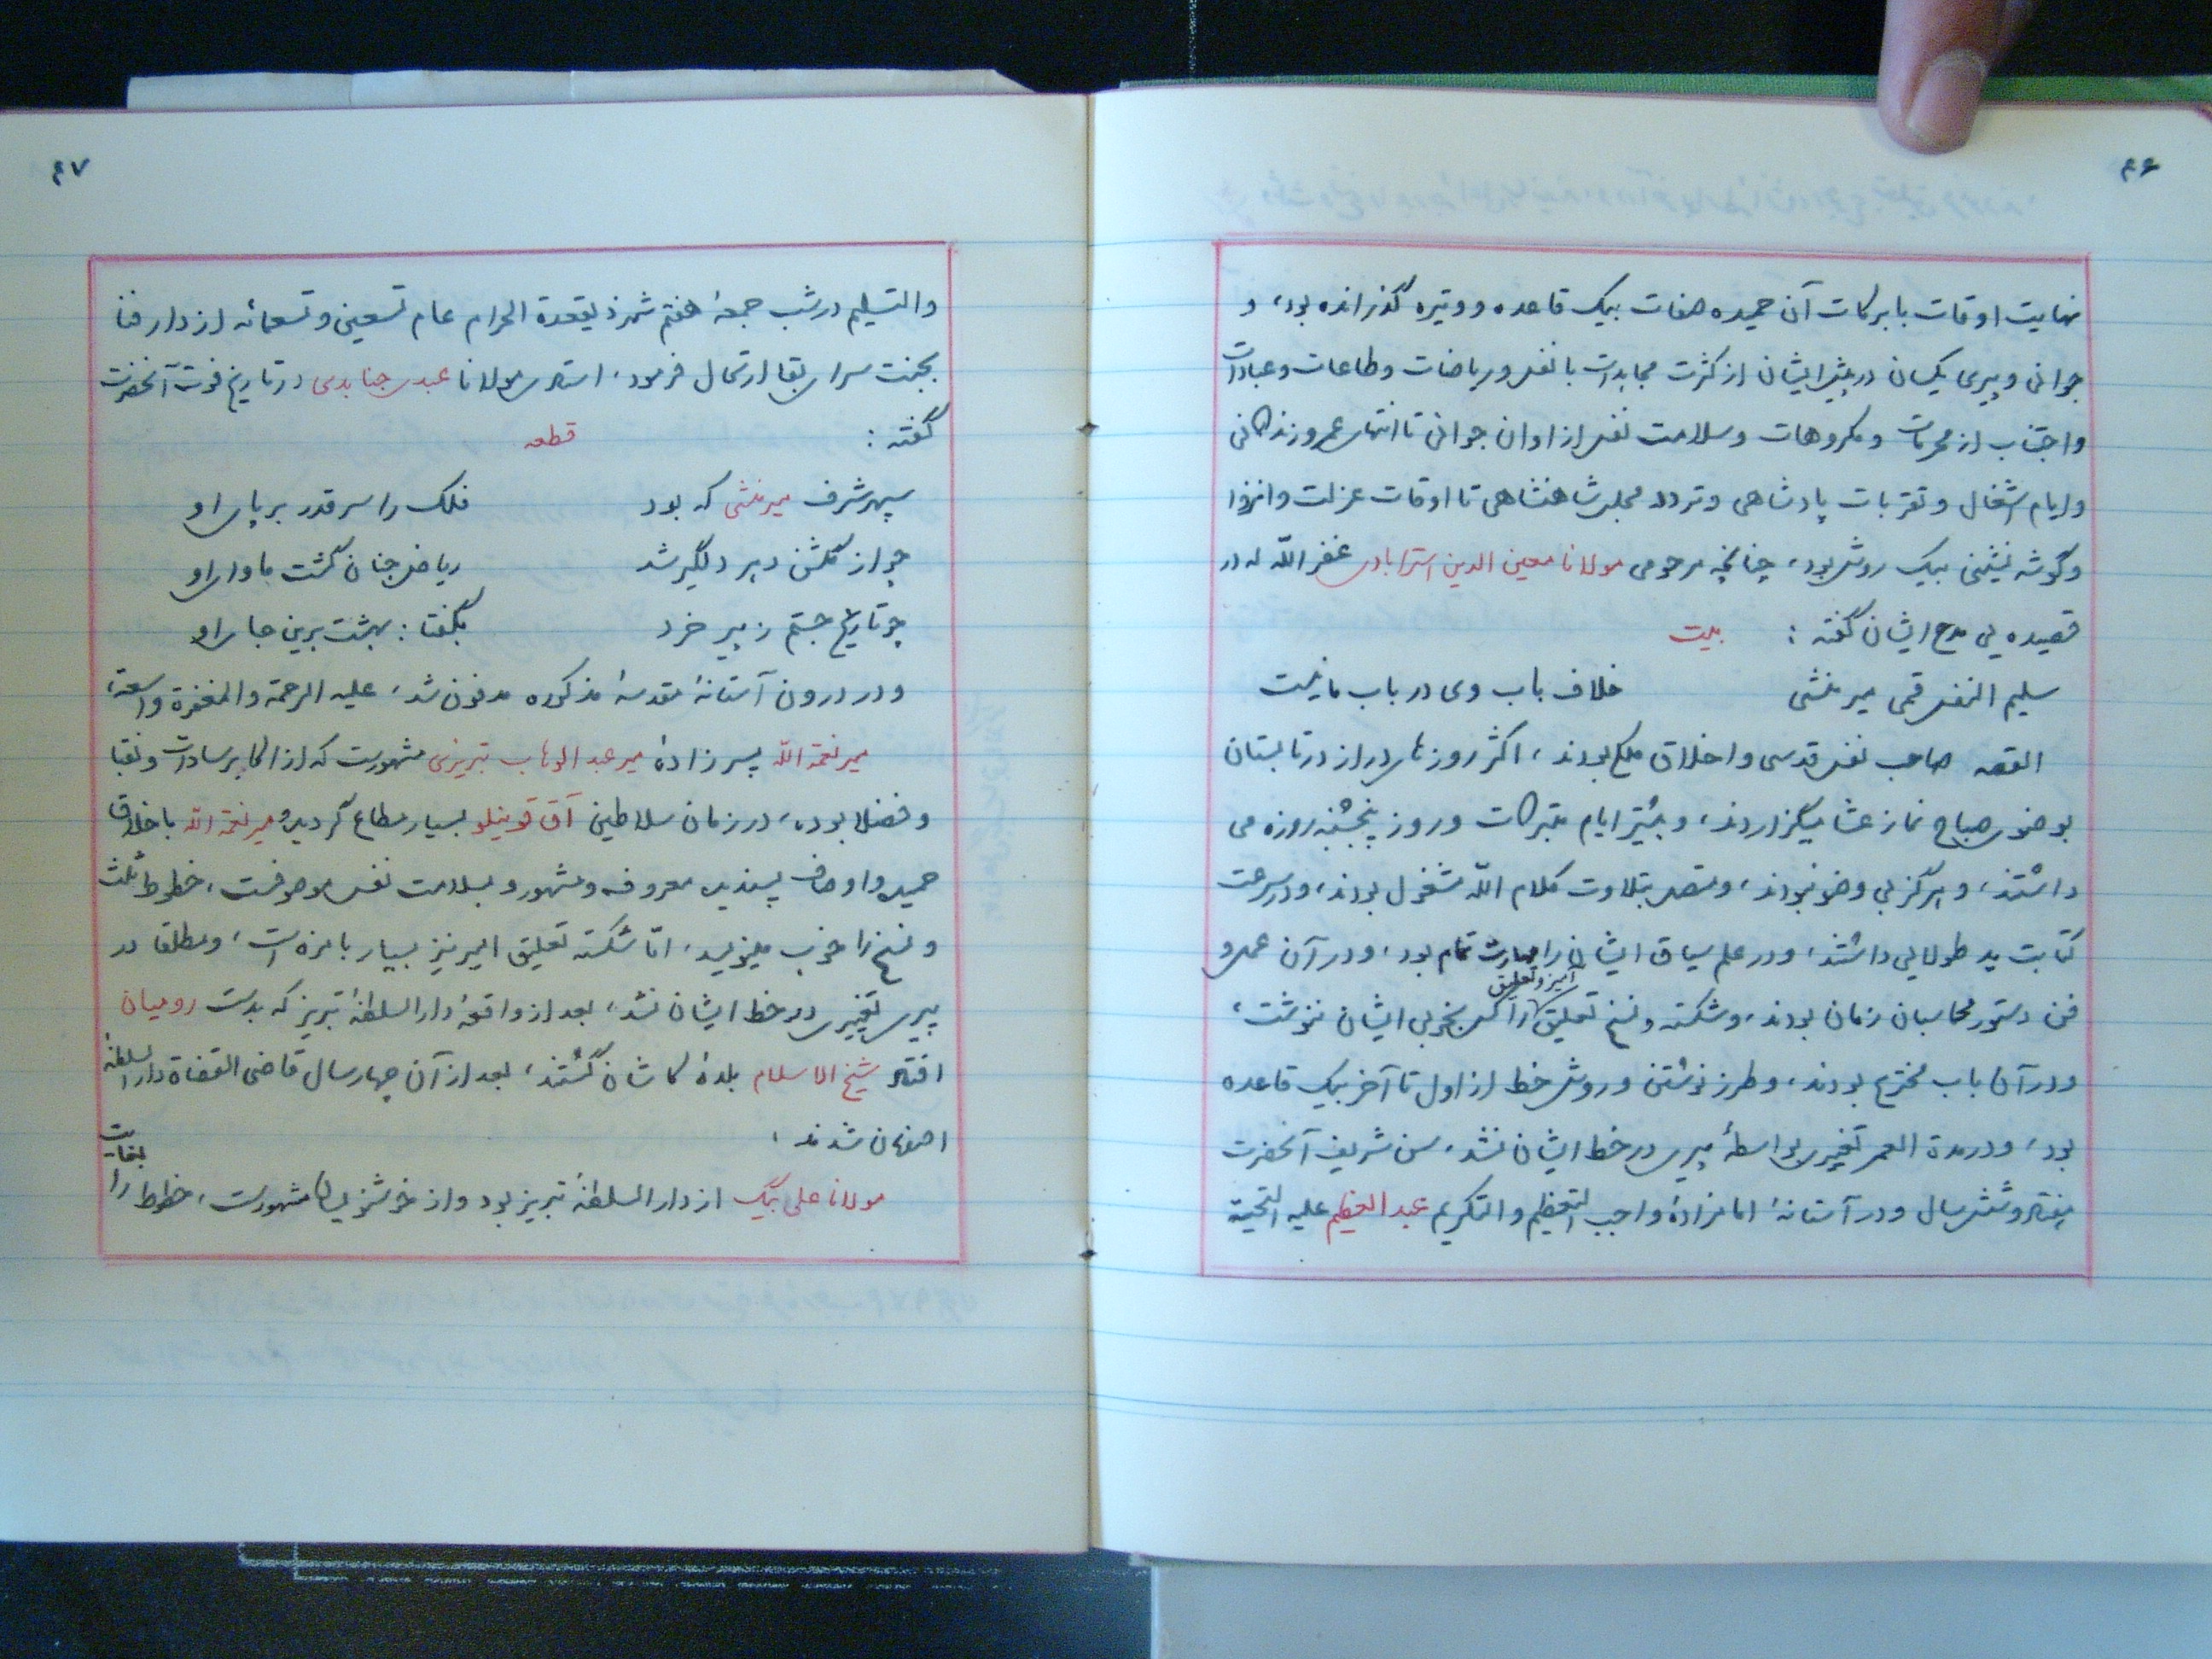 ۴۶
نهایت اوقات با برکات آن حمیده صفات بیک قاعده و وتیره گذرانده بود، و
جوانی و پیری یکسان در پیش ایشان از کثرت مجاهدات با نفس و ریاضات و طاعات و عبادات
و اجتناب از محرمات و مکروهات و سلامت نفس از اوان جوانی تا انتهای عمر و زندگانی
و ایام اشتغال و تقربات پادشاهی و تردد مجلس شاهنشاهی تا اوقات عزلت و انزوا
و گوشه نشینی بیک روش بود، چنانچه مرحومی مولانا معین الدین استرابادی غفر اللّه له در
قصیده یی مدح ایشان گفته : بیت
سلیم النفس قمی میر منشی خلاف باب وی در باب ما نیست
القصه صاحب نفس قدسی و اخلاق ملکی بودند، اکثر روزهای دراز در تابستان
بوضوی صباح نماز عشا میگزاردند، و بیشتر ایام متبرکات و روز پنجشنبه روزه می
داشتند، و هرگز بی وضو نبودند، و متصل بتلاوت کلام اللّه مشغول بودند، و در سرعت
کتابت ید طولایی داشتند، و در علم سیاق ایشان را مهارت تمام بود، و در آن عمل و
فن دستور محاسبان زمان بودند، و شکسته و نسخ تعلیق آمیز و تعلیق را کسی بخوبی ایشان ننوشت،
و در آن باب مخترع بودند، و طرز نوشتن و روش خط از اول تا آخر بیک قاعده
بود، و در مدة العمر تغییری بواسطۀ پیری در خط ایشان نشد، سن شریف آنحضرت
هفتاد و شش سال و در آستانۀ امامزادۀ واجب التعظیم و التکریم عبد العظیم علیه التحیة
۴۷
والتسلیم در شب جمعۀ هفتم شهر ذیقعدة الحرام عام تسعین و تسعمائه از دار فنا
بجنت سرای بقا ارتحال فرمود، استادی مولانا عبدی جنابدی در تاریخ فوت آنحضرت
گفته : قطعه
سپهر شرف میر منشی که بود فلک را سر قدر بر پای او
چو از گلشن دهر دلگیر شد ریاض جنان گشت ماوای او
چو تاریخ جستم ز پیر خرد بگفتا : بهشت برین جای او
و در درون آستانۀ مقدسۀ مذکوره مدفون شد، علیه الرحمة و المغفرة واسعة،
میر نعمة اللّه پسر زادۀ میر عبد الوهاب تبریزی مشهورست که از اکابر سادات و نقبا
و فضلا بوده، در زمان سلاطین آق قوینلو بسیار مطاع گردیده میر نعمة اللّه باخلاق
حمیده و اوصاف پسندیده معروف و مشهور و بسلامت نفس موصوفست، خطوط ثلث
و نسخ را خوب مینویسد، امّا شکسته تعلیق المیر نیز بسیار بامزه است، و مطلقا در
پیری تغییری در خط ایشان نشد، بعد از واقعۀ دار السلطنۀ تبریز که بدست رومیان
افتاد شیخ الاسلام بلدۀ کاشان گشتند، بعد از آن چهار سال قاضی القضاة دار السلطنۀ
اصفهان شدند،
مولانا علی بیک از دار السلطنۀ تبریز بود و از خوشنویسان مشهورست، خطوط را بغایت